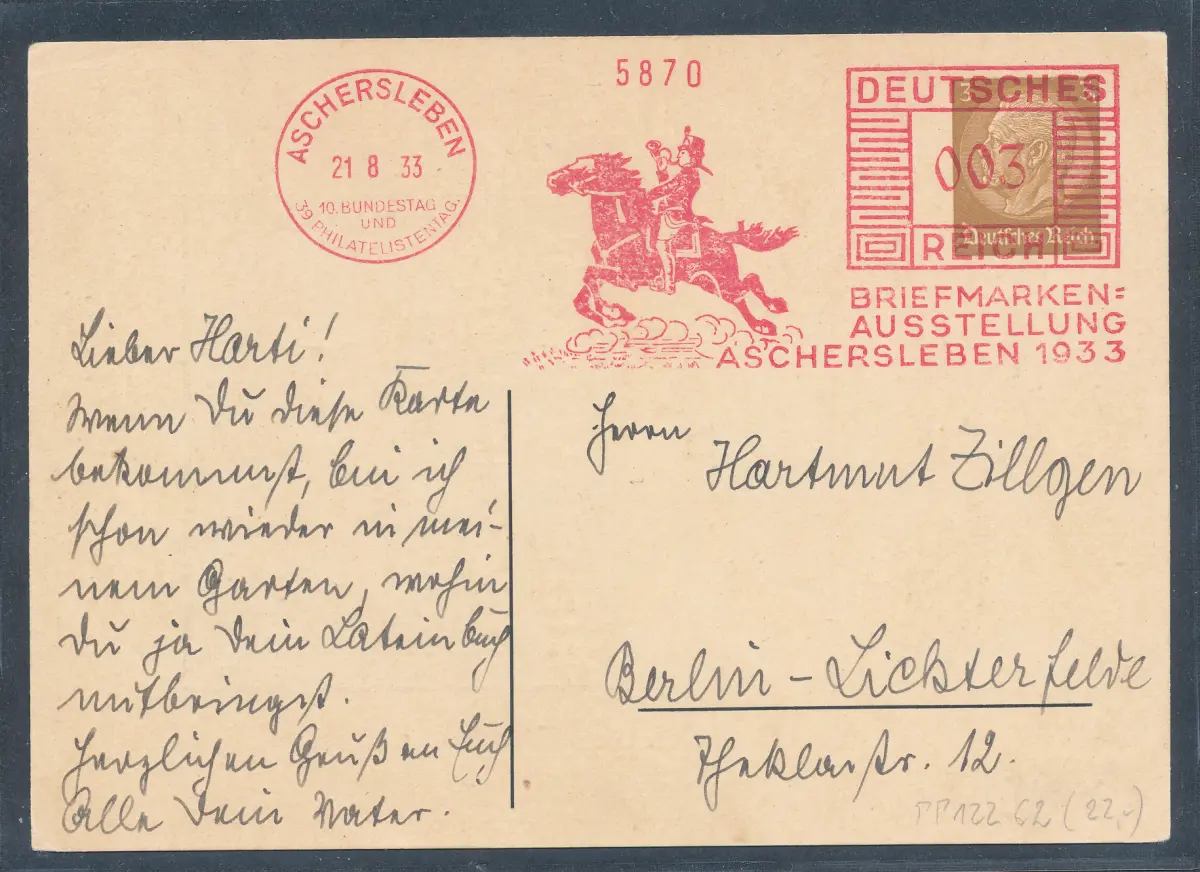 5870
ASCHERSLEBEN
21 8 33
10. BUNDESTAG
UND
39 PHILATELISTENTAG.
DEUTSCHES
3
003
Deutsches Reich
REICH
BRIEFMARKEN=
AUSSTELLUNG
ASCHERSLEBEN 1933
Lieber Harti!
Wenn Du diese Karte
bekommst, bin ich
schon wieder in mei-
nem Garten, wohin
Du ja Dein Lateinbuch
mitbringst.
Herzlichen Gruß an Euch
Alle Dein Vater.
Herrn
Hartmut Zillgen
Berlin - Lichterfelde
Theklastr. 12.
PP122 C2 (22,-)